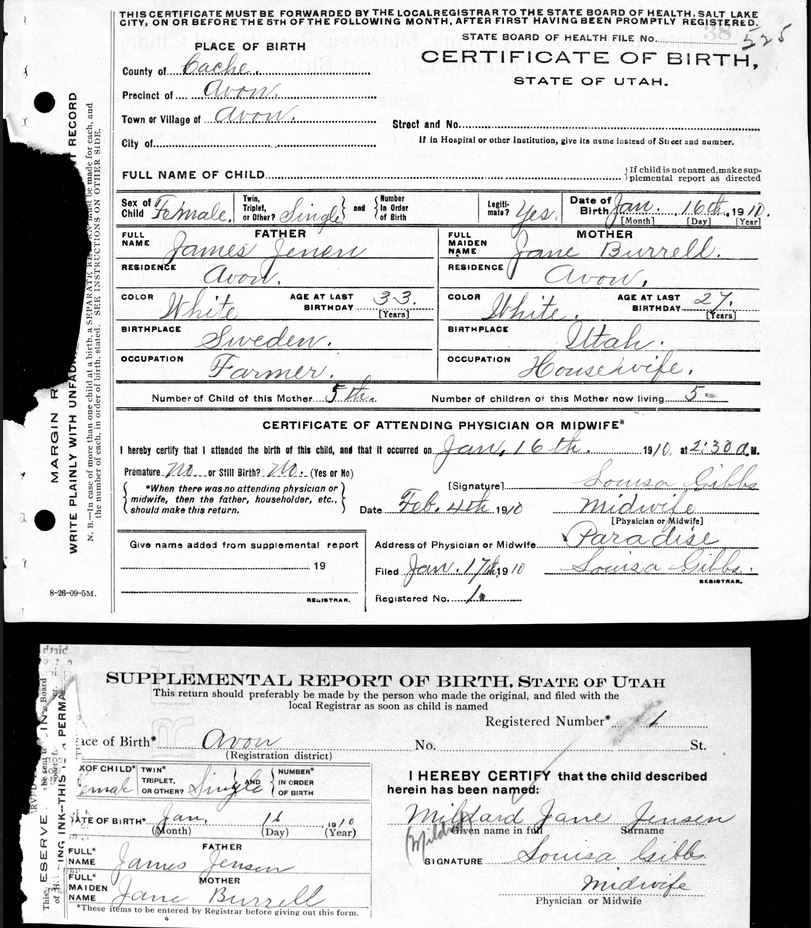 THIS CERTIFICATE MUST BE FORWARDED BY THE LOCAL REGISTRAR TO THE STATE BOARD OF HEALTH, SALT LAKE
CITY, ON OR BEFORE THE 5TH OF THE FOLLOWING MONTH, AFTER FIRST HAVING BEEN PROMPTLY REGISTERED.
STATE BOARD OF HEALTH FILE No. 525
PLACE OF BIRTH
CERTIFICATE OF BIRTH,
STATE OF UTAH.
County of Cache.
Precinct of Avon.
Town or Village of Avon.
City of
Street and No.
If in Hospital or other Institution, give its name instead of Street and number.
FULL NAME OF CHILD
If child is not named, make supplemental report as directed
Sex of Child Female. Twin, Triplet, or Other? Single and Number In Order of Birth Legitimate? Yes. Date of Birth Jan. 16th, 1910.
[Month] [Day] [Year]
FATHER
FULL NAME James Jensen
RESIDENCE Avon.
COLOR White AGE AT LAST BIRTHDAY 33.
[Years]
BIRTHPLACE Sweden.
OCCUPATION Farmer.
MOTHER
FULL MAIDEN NAME Jane Burrell.
RESIDENCE Avon.
COLOR White. AGE AT LAST BIRTHDAY 27.
[Years]
BIRTHPLACE Utah.
OCCUPATION Housewife.
Number of Child of this Mother 5th. Number of children of this Mother now living 5
CERTIFICATE OF ATTENDING PHYSICIAN OR MIDWIFE*
I hereby certify that I attended the birth of this child, and that it occurred on Jan. 16th. 1910. at 2:30 a.M.
Premature no. or Still Birth? no. (Yes or No)
*When there was no attending physician or
midwife, then the father, householder, etc.,
should make this return.
[Signature] Louisa Gibbs
Date Feb. 4th 1910 Midwife
[Physician or Midwife]
Give name added from supplemental report
19
REGISTRAR.
Address of Physician or Midwife Paradise
Filed Jan. 17th, 1910 Louisa Gibbs.
REGISTRAR.
Registered No. 1.
8-26-09-5M.
MARGIN R
T RECORD
WRITE PLAINLY WITH UNFAD
N. B.—In case of more than one child at a birth, a SEPARATE RE must be made for each, and
the number of each, in order of birth, stated. SEE INSTRUCTIONS ON OTHER SIDE.
SUPPLEMENTAL REPORT OF BIRTH, STATE OF UTAH
This return should preferably be made by the person who made the original, and filed with the
local Registrar as soon as child is named
Registered Number* 1
ace of Birth* Avon No. St.
(Registration district)
X OF CHILD* emale TWIN* TRIPLET, OR OTHER? Single AND NUMBER* IN ORDER OF BIRTH
ATE OF BIRTH* Jan. 16 1910
(Month) (Day) (Year)
FATHER
FULL* NAME James Jensen
MOTHER
FULL* MAIDEN NAME Jane Burrell
*These items to be entered by Registrar before giving out this form.
I HEREBY CERTIFY that the child described
herein has been named:
Mildard Jane Jensen
Given name in full Surname
SIGNATURE Louisa Gibbs
Midwife
Physician or Midwife